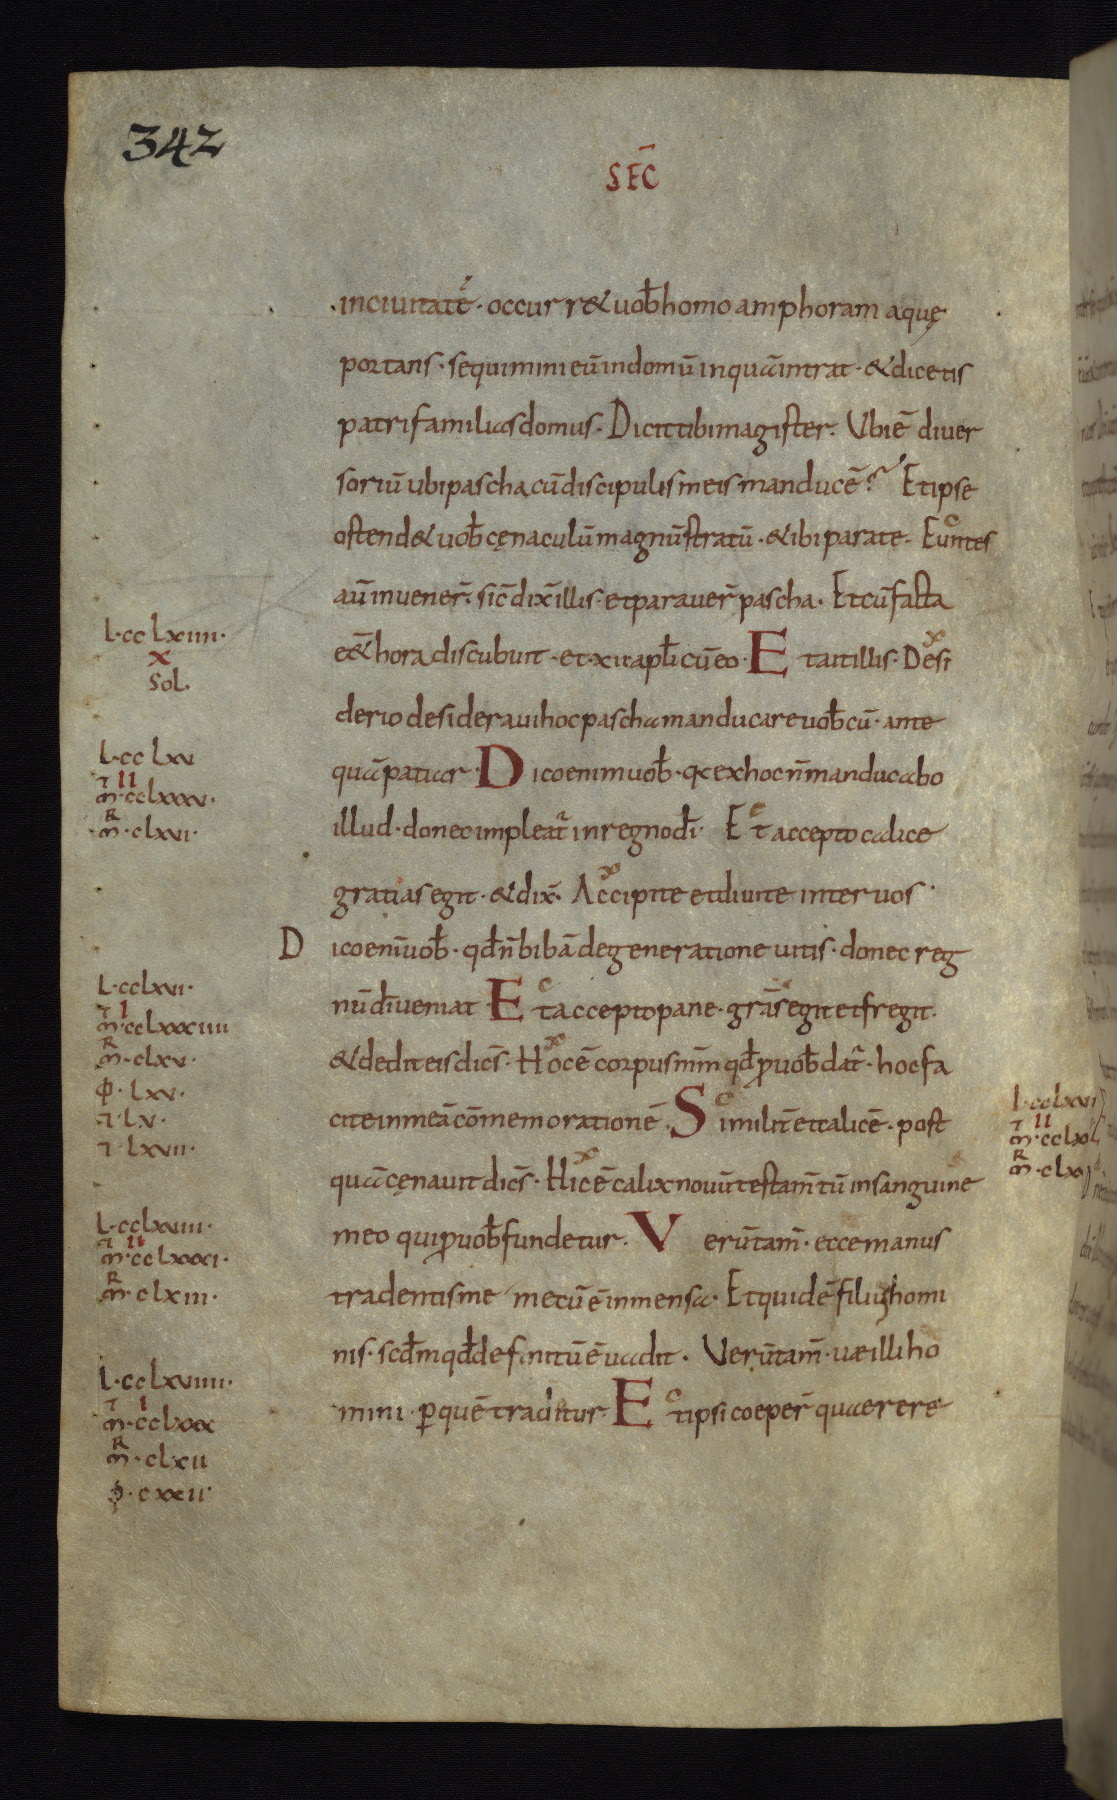 342
SEC̄
in ciuitatē · occurr& uob̄ homo amphoram aquę
portans · sequimini eū in domū in quā intrat · & dicetis
patrifamilias domus · Dicit tibi magister · Ubi ē diuer
soriū ubi pascha cū discipulis meis manducē? Et ipse
ostend& uob̄ cęnaculū magnū stratū · & ibi parate · Euntes
aū inuener̄ · sic̄ dix̄ illis · et parauer̄ pascha · Et cū facta
e&̄ hora discubuit · et · xii apl̄i cū eo · Et ait illis · Desi
L · cclxiiii ·
x
Sol.
derio desideraui hoc pascha manducare uob̄cū · ante
quā patiar · Dico enim uob̄ · q̄ ex hoc n̄ manducabo
L · cclxv
m̄ · cclxxxv ·
II
m̄ · clxvi ·
R
illud · donec impleat̄ in regno dī · Et accepto calice
gratias egit · & dix̄ · Accipite et diuite inter uos ·
Dico enī uob̄ · qd̄ n̄ bibā de generatione uitis · donec reg
nū dī ueniat · Et accepto pane · grās egit et fregit ·
L · cclxvi ·
I
m̄ · cclxxxiiii
R
m̄ · clxv ·
φ · lxv ·
lv ·
lxvii ·
& dedit eis dicēs · Hoc ē corpus mm̄ qd̄ ꝓ uob̄ dat̄ · hoc fa
cite in meā cōmemorationē · Similit̄ et calicē · post
L · cclxvii
II
R
quā cęnauit dicēs · Hic ē calix nouū testam̄tū in sanguine
meo qui ꝓ uob̄ fundetur · Uerūtam̄ · ecce manus
L · cclxviii ·
II
m̄ · cclxxxi ·
R
m̄ · clxiii ·
tradentis me mecū ē in mensa · Et quidē filius homi
nis · scd̄m qd̄ definitū ē uadit · Uerūtam̄ · uae illi ho
L · cclxviiii ·
I
m̄ · cclxxx
R
m̄ · clxii
φ · cxxii ·
mini · ꝑ quē tradetur · Et ipsi coeper̄ quaerere